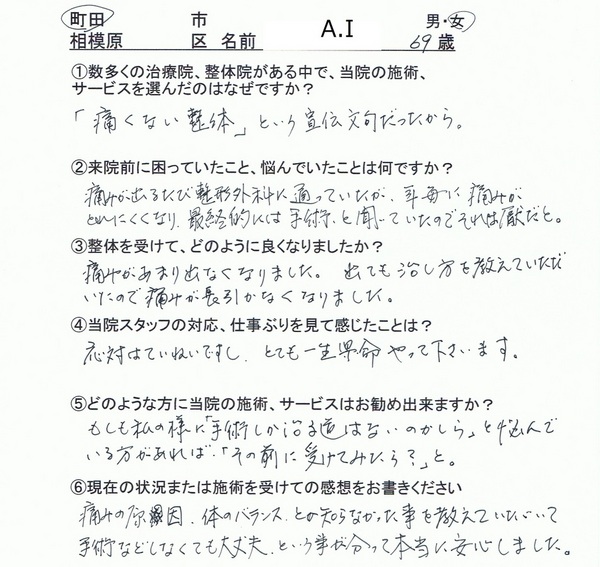 町田 市 A.I 男・女
相模原 区 名前 69歳
①数多くの治療院、整体院がある中で、当院の施術、
サービスを選んだのはなぜですか？
「痛くない整体」という宣伝文句だったから。
②来院前に困っていたこと、悩んでいたことは何ですか？
痛みが出るたび整形外科に通っていたが、年毎に痛みが
とれにくくなり、最終的には手術、と聞いていたのでそれは厭だと。
③整体を受けて、どのように良くなりましたか？
痛みがあまり出なくなりました。出ても治し方を教えていただ
いたので痛みが長引かなくなりました。
④当院スタッフの対応、仕事ぶりを見て感じたことは？
応対はていねいですし、とても一生県命やって下さいます。
⑤どのような方に当院の施術、サービスはお勧め出来ますか？
もしも私の様に「手術しか治る道はないのかしら」と悩んで
いる方があれば「その前に受けてみたら？」と。
⑥現在の状況または施術を受けての感想をお書きください
痛みの原因、体のバランス、とか知らなかった事を教えていただいて
手術などしなくても大丈夫、という事が分って本当に安心しました。